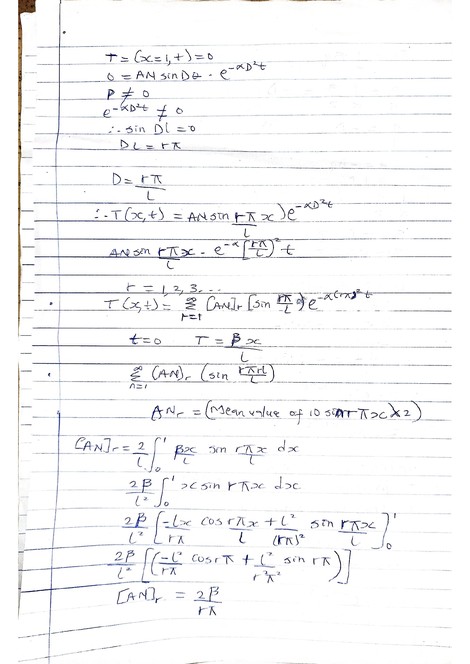 T = (x=1, t) = 0
0 = AN sin Dθ · e^-αD²t
P ≠ 0
e^-αD²t ≠ 0
∴ sin Dl = 0
DL = rπ
D = rπ/L
∴ T(x,t) = AN sin rπ/L x) e^-αD²t
AN sin rπx/L · e^-α[rπ/L]² t
r = 1, 2, 3, ...
T(x,t) = ∞Σr=1 [AN]r [sin rπ/L e^-α(rπ)² t
t=0 T = βx/L
∞Σn=1 (AN)r (sin rπrl/L)
ANr = (Mean value of 10 sin rπx X2)
[AN]r = 2/L ∫₀¹ βx/L sin rπx/L dx
2β/L² ∫₀¹ x sin rπx dx
2β/L² [-Lx/rπ cos rπx/L + L²/(rπ)² sin rπx/L]₀¹
2β/L² [(-L²/rπ cos rπ + L²/r²π² sin rπ)]
[AN]r = 2β/rπ